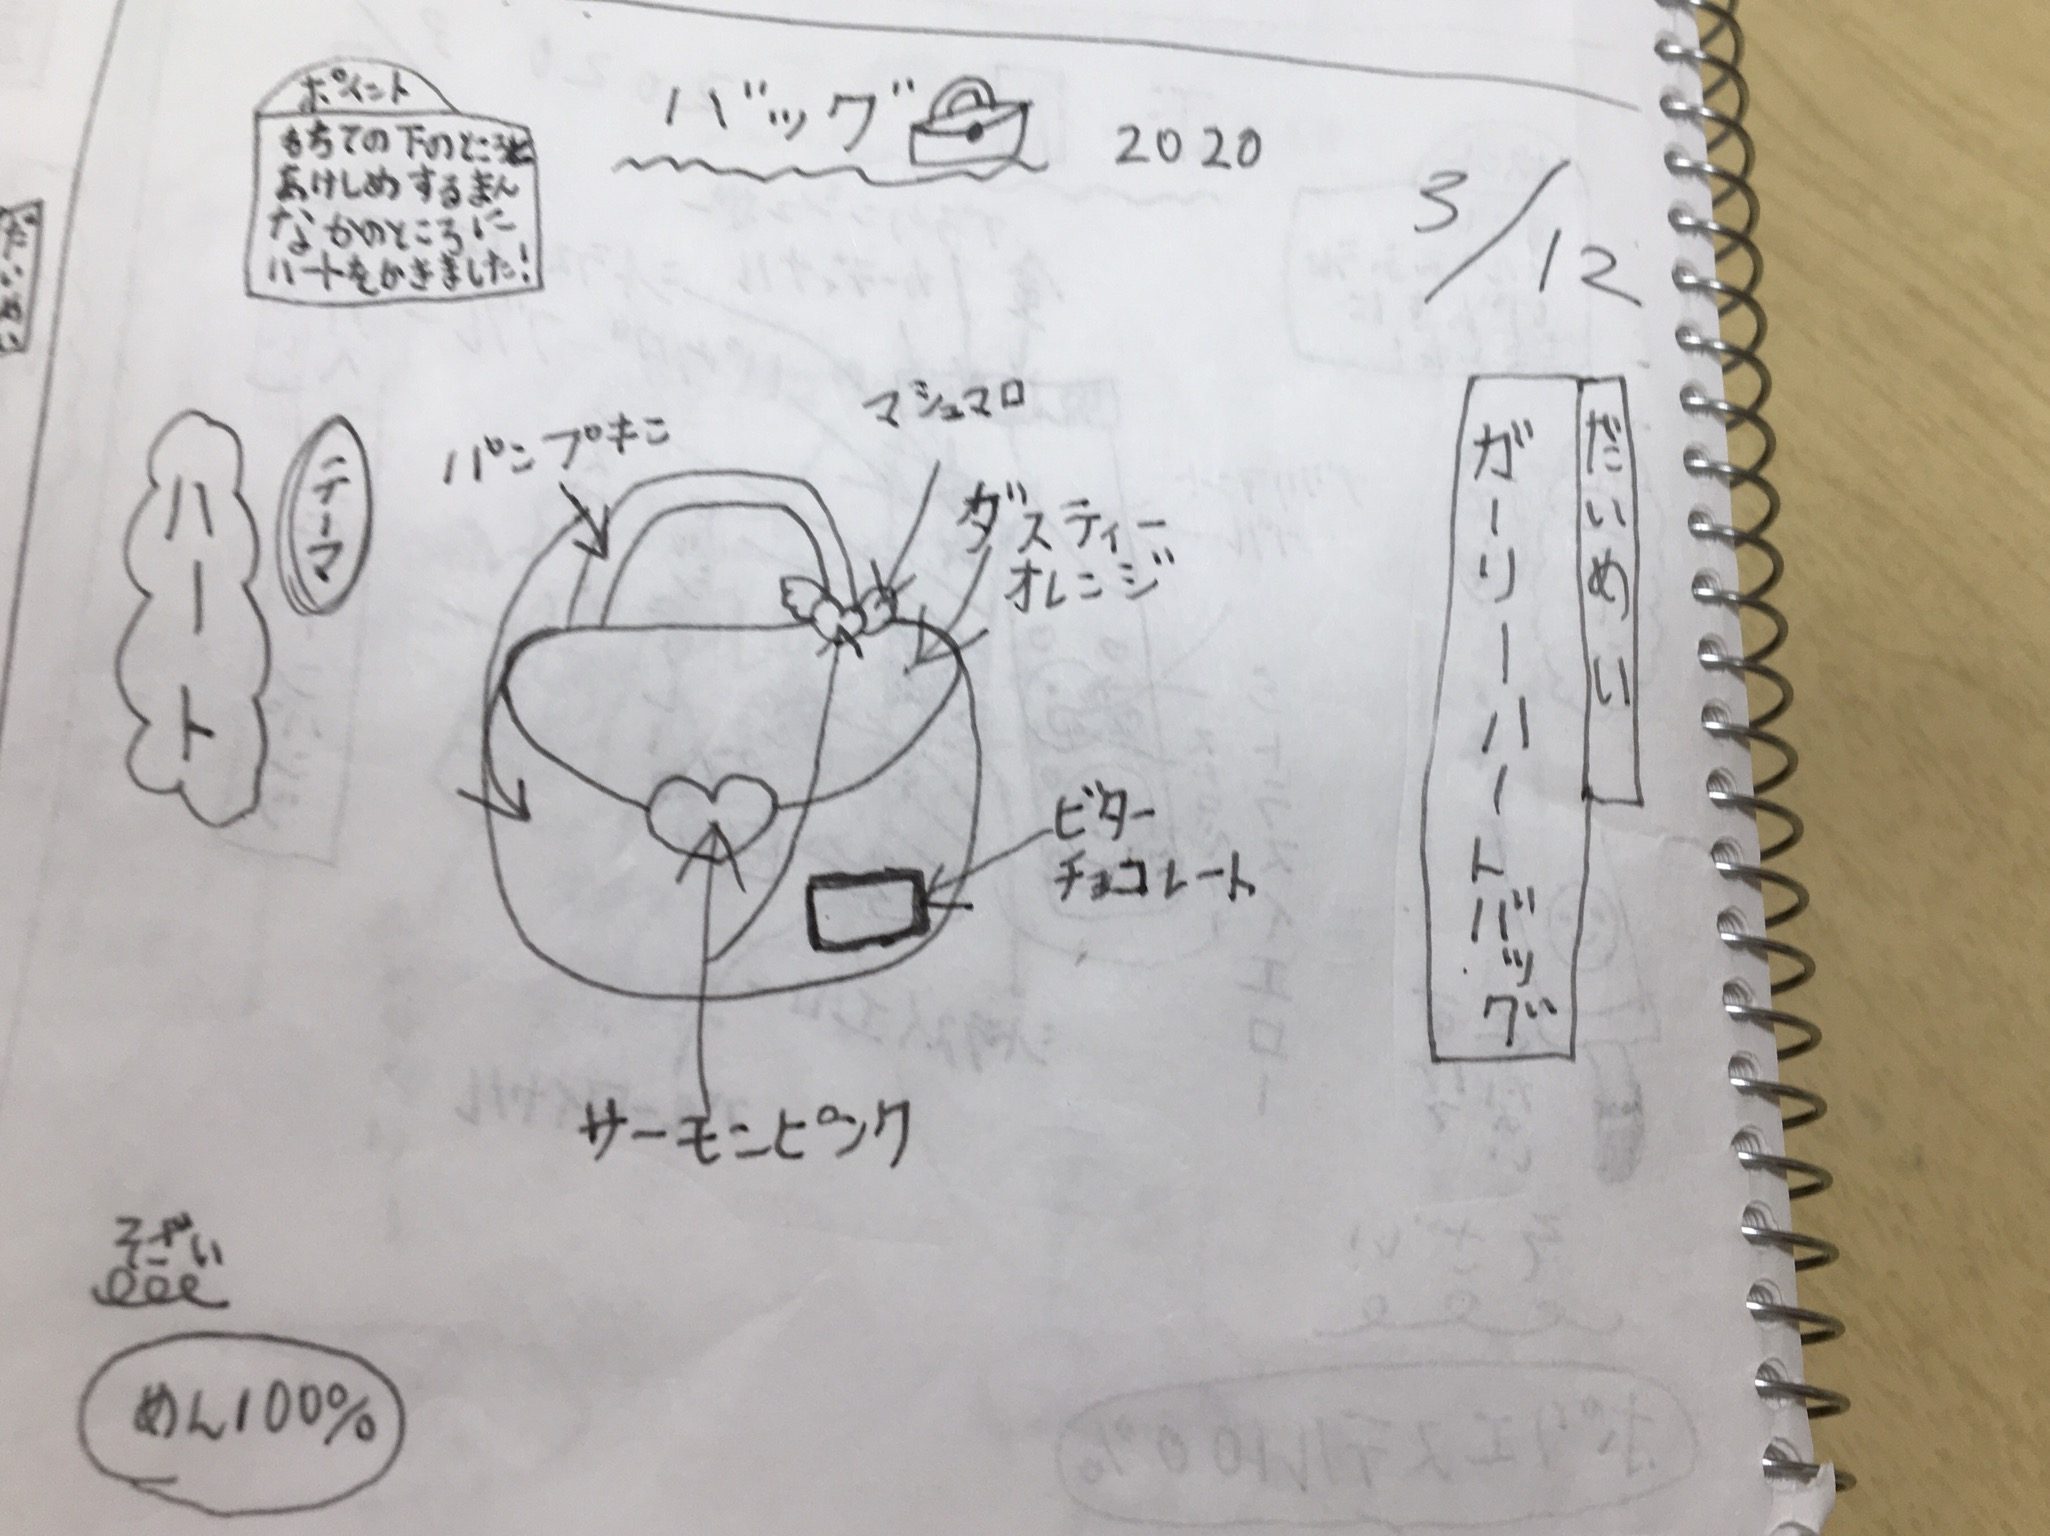 バッグ
2020
3/12
ポイント
もちての下のところと
あけしめするまん
なかのところに
ハートをかきました!
だいめい
ガーリーハートバッグ
テーマ
ハート
パンプキン
マシュマロ
ダスティー
オレンジ
ビター
チョコレート
サーモンピンク
そざい
めん100%
だいめい